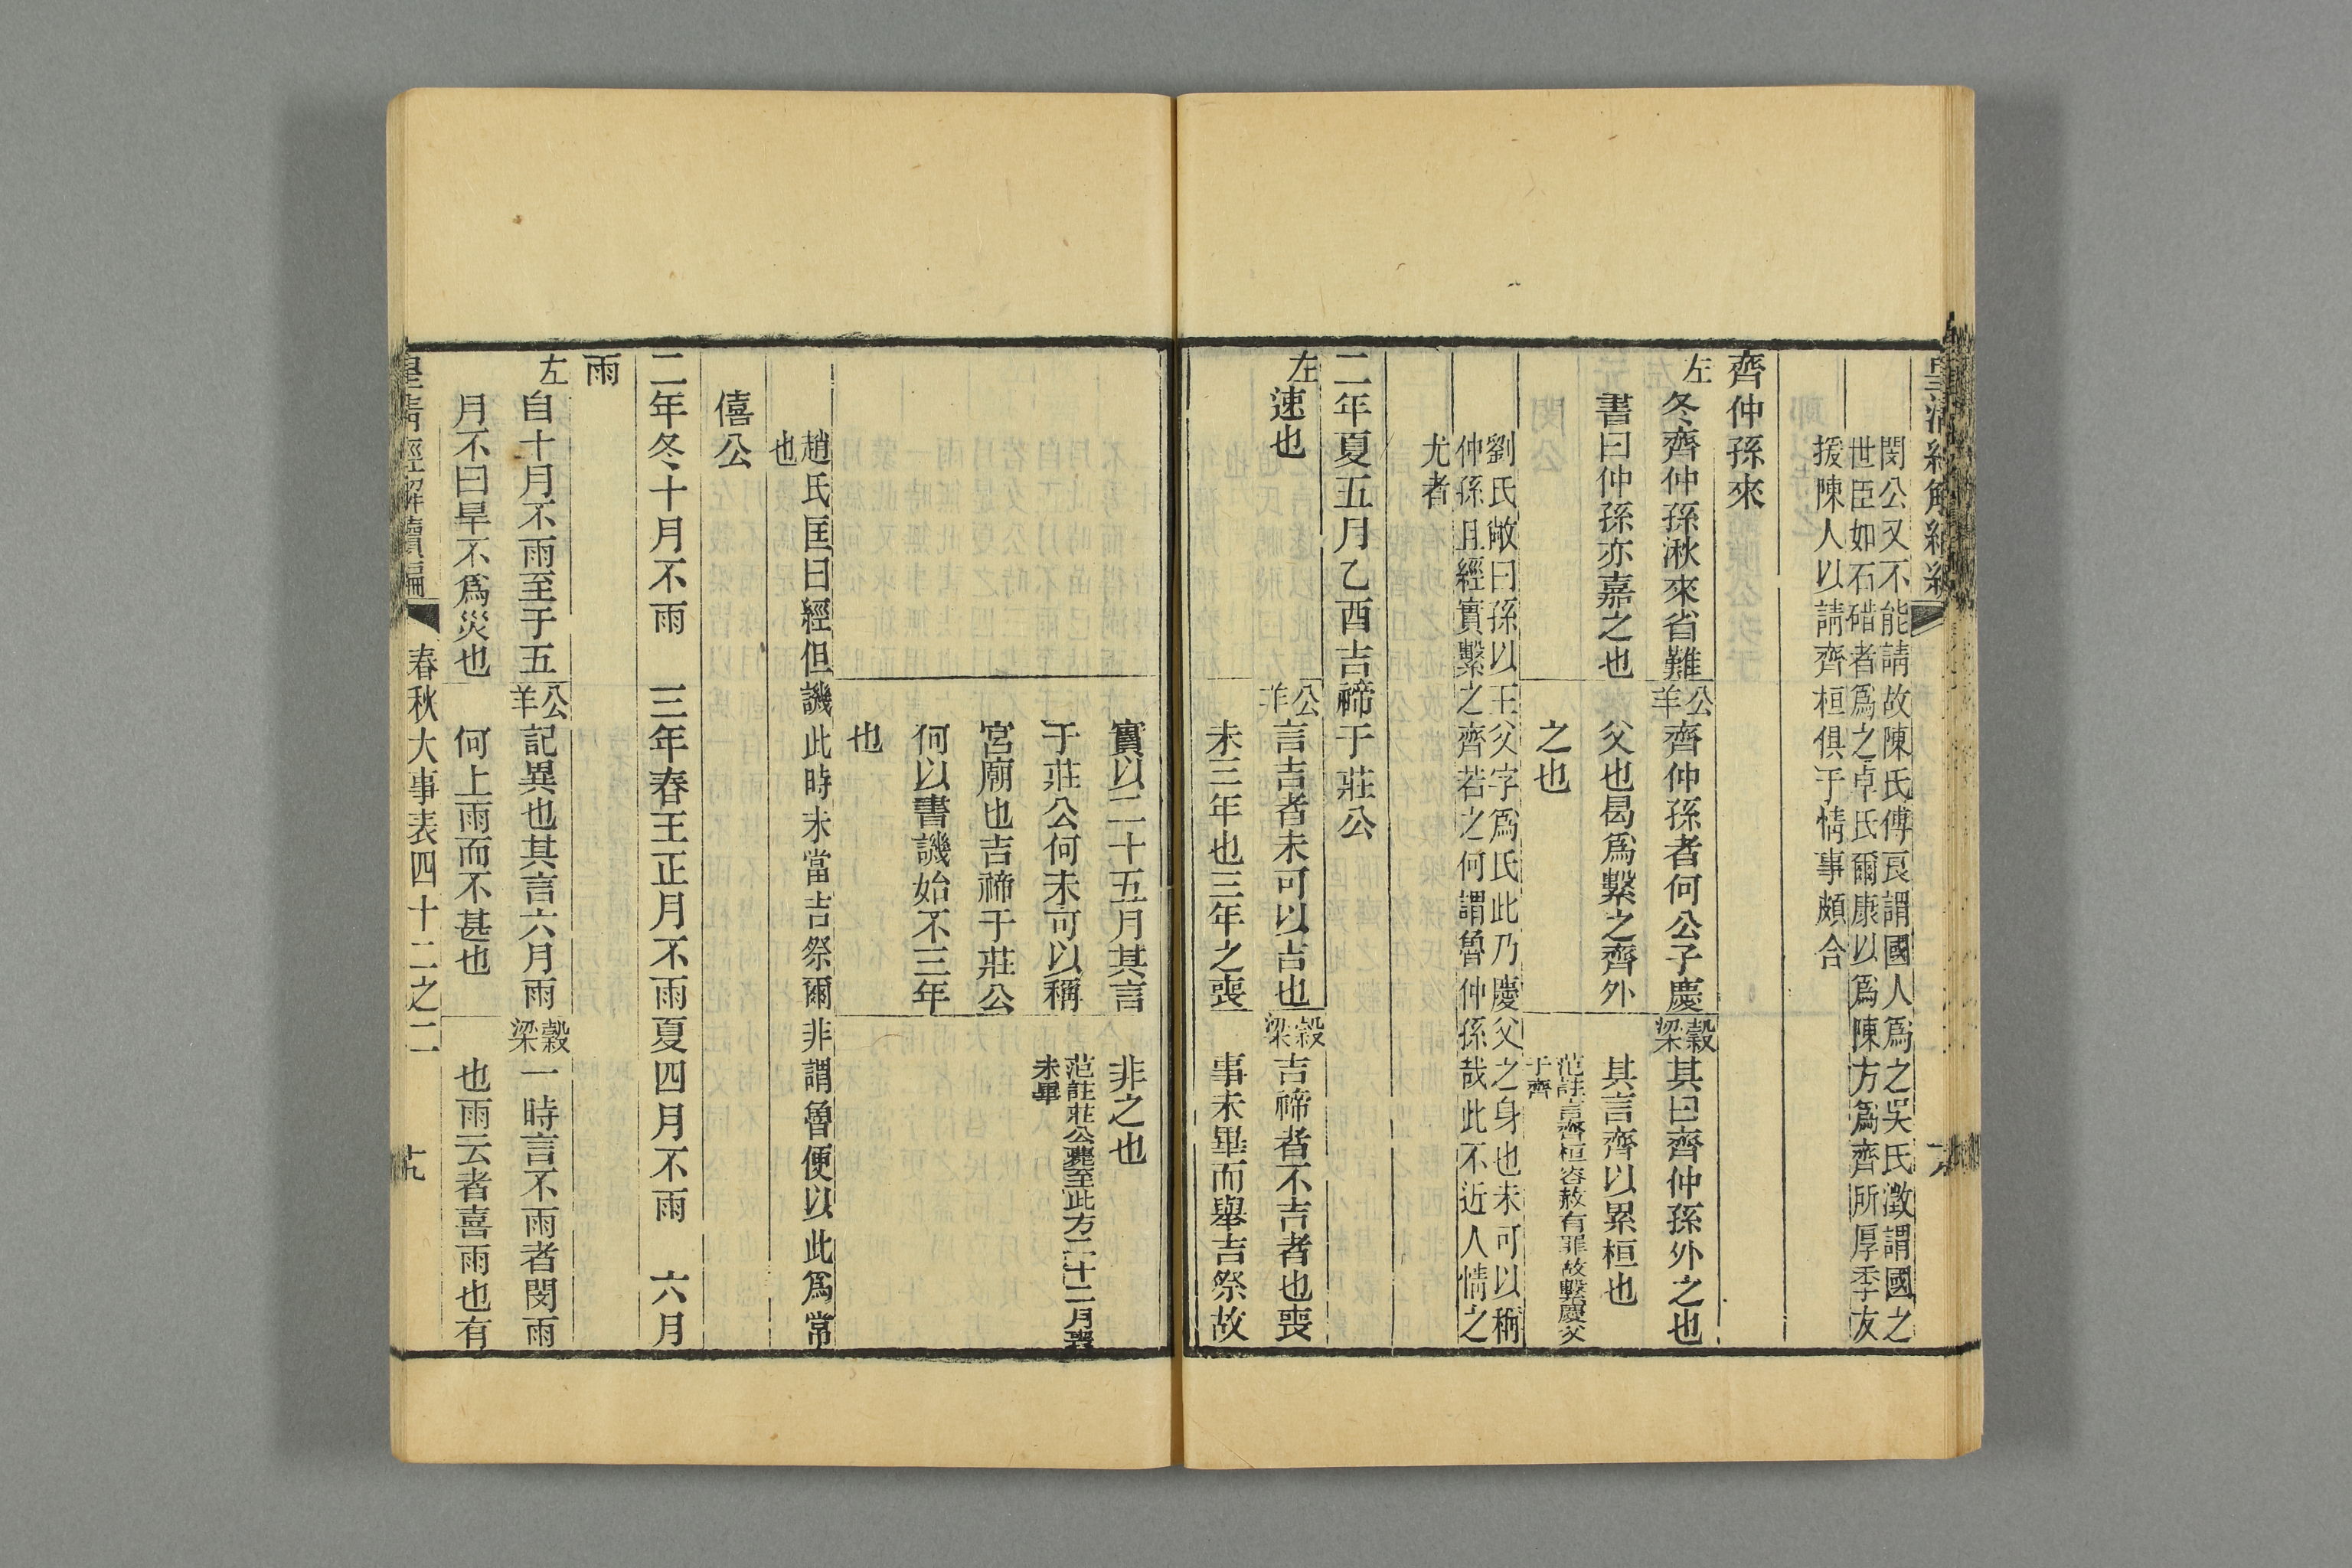 閔公又不能請故陳氏傅良謂國人爲之吳氏澂謂國之
世臣如石碏者爲之卓氏爾康以爲陳方爲齊所厚季友
援陳人以請齊桓俱于情事頗合
齊仲孫來
左
冬齊仲孫湫來省難
書曰仲孫亦嘉之也
公羊
齊仲孫者何公子慶
父也曷爲繫之齊外
之也
穀梁
其曰齊仲孫外之也
其言齊以累桓也
范註言齊桓容赦有罪故繫慶父
于齊
劉氏敞曰孫以王父字爲氏此乃慶父之身也未可以稱
仲孫且經實繫之齊若之何謂魯仲孫哉此不近人情之
尤者
二年夏五月乙酉吉禘于莊公
左
速也
公羊
言吉者未可以吉也
未三年也三年之喪
穀梁
吉禘者不吉者也喪
事未畢而舉吉祭故
實以二十五月其言
于莊公何未可以稱
宮廟也吉禘于莊公
何以書譏始不三年
也
非之也
范註莊公薨至此方二十二月喪
未畢
趙氏匡曰經但譏此時未當吉祭爾非謂魯便以此爲常
也
僖公
二年冬十月不雨　三年春王正月不雨夏四月不雨　六月
雨
左
自十月不雨至于五
月不曰旱不爲災也
公羊
記異也其言六月雨
何上雨而不甚也
穀梁
一時言不雨者閔雨
也雨云者喜雨也有
皇清經解續編
春秋大事表四十二之二
十九